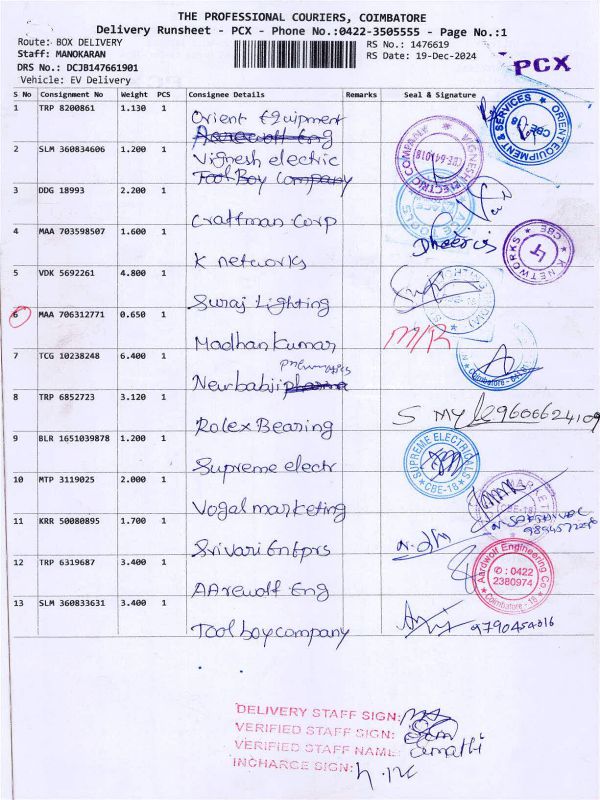 THE PROFESSIONAL COURIERS, COIMBATORE
Delivery Runsheet - PCX - Phone No.:0422-3505555 - Page No.:1
Route: BOX DELIVERY
Staff: MANOKARAN
DRS No.: DCJB147661901
Vehicle: EV Delivery
RS No.: 1476619
RS Date: 19-Dec-2024
PCX
S No Consignment No Weight PCS Consignee Details Remarks Seal & Signature
1 TRP 8200861 1.130 1 Orient Equipment
2 SLM 360834606 1.200 1 Vignesh electric
Tool Boy company
3 DDG 18993 2.200 1 Craftman Corp
4 MAA 703598507 1.600 1 K networks
5 VDK 5692261 4.800 1 Suraj Lighting
6 MAA 706312771 0.650 1 Madhan Kumar
7 TCG 10238248 6.400 1 Newbabji pharma
8 TRP 6852723 3.120 1 Rolex Bearing
9 BLR 1651039878 1.200 1 Supreme electr
10 MTP 3119025 2.000 1 Vogal marketing
11 KRR 50080895 1.700 1 Srivari Entprs
12 TRP 6319687 3.400 1 AArewolf Eng
13 SLM 360833631 3.400 1 Tool boy company
ORIENT EQUIPMENT & SERVICES
CBE-18
VIGNESH ELECTRIC COMPANY
CBE-641018
K NETWORKS
CBE
M/R
9606624109
SUPREME ELECTRICALS
CBE-18
Aardwolf Engineering Co
✆: 0422
2380974
Coimbatore - 18
9790454016
DELIVERY STAFF SIGN:
VERIFIED STAFF SIGN:
VERIFIED STAFF NAME: Umathi
INCHARGE SIGN: